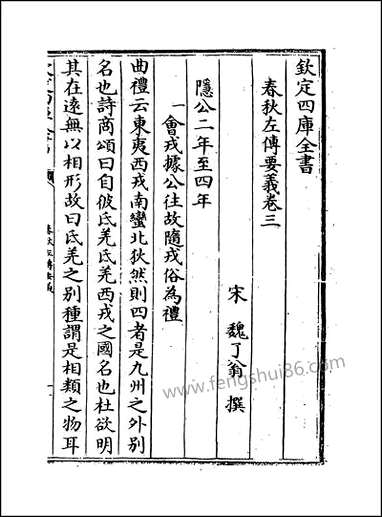 欽定四庫全書
春秋左傳要義卷三
宋 魏了翁 撰
隱公二年至四年
一會戎據公往故隨戎俗為禮
曲禮云東夷西戎南蠻北狄然則四者是九州之外別
名也詩商頌曰自彼氐羌氐羌西戎之國名也杜欲明
其在遠無以相形故曰氐羌之別種謂是相類之物耳
www.fengshui86.com